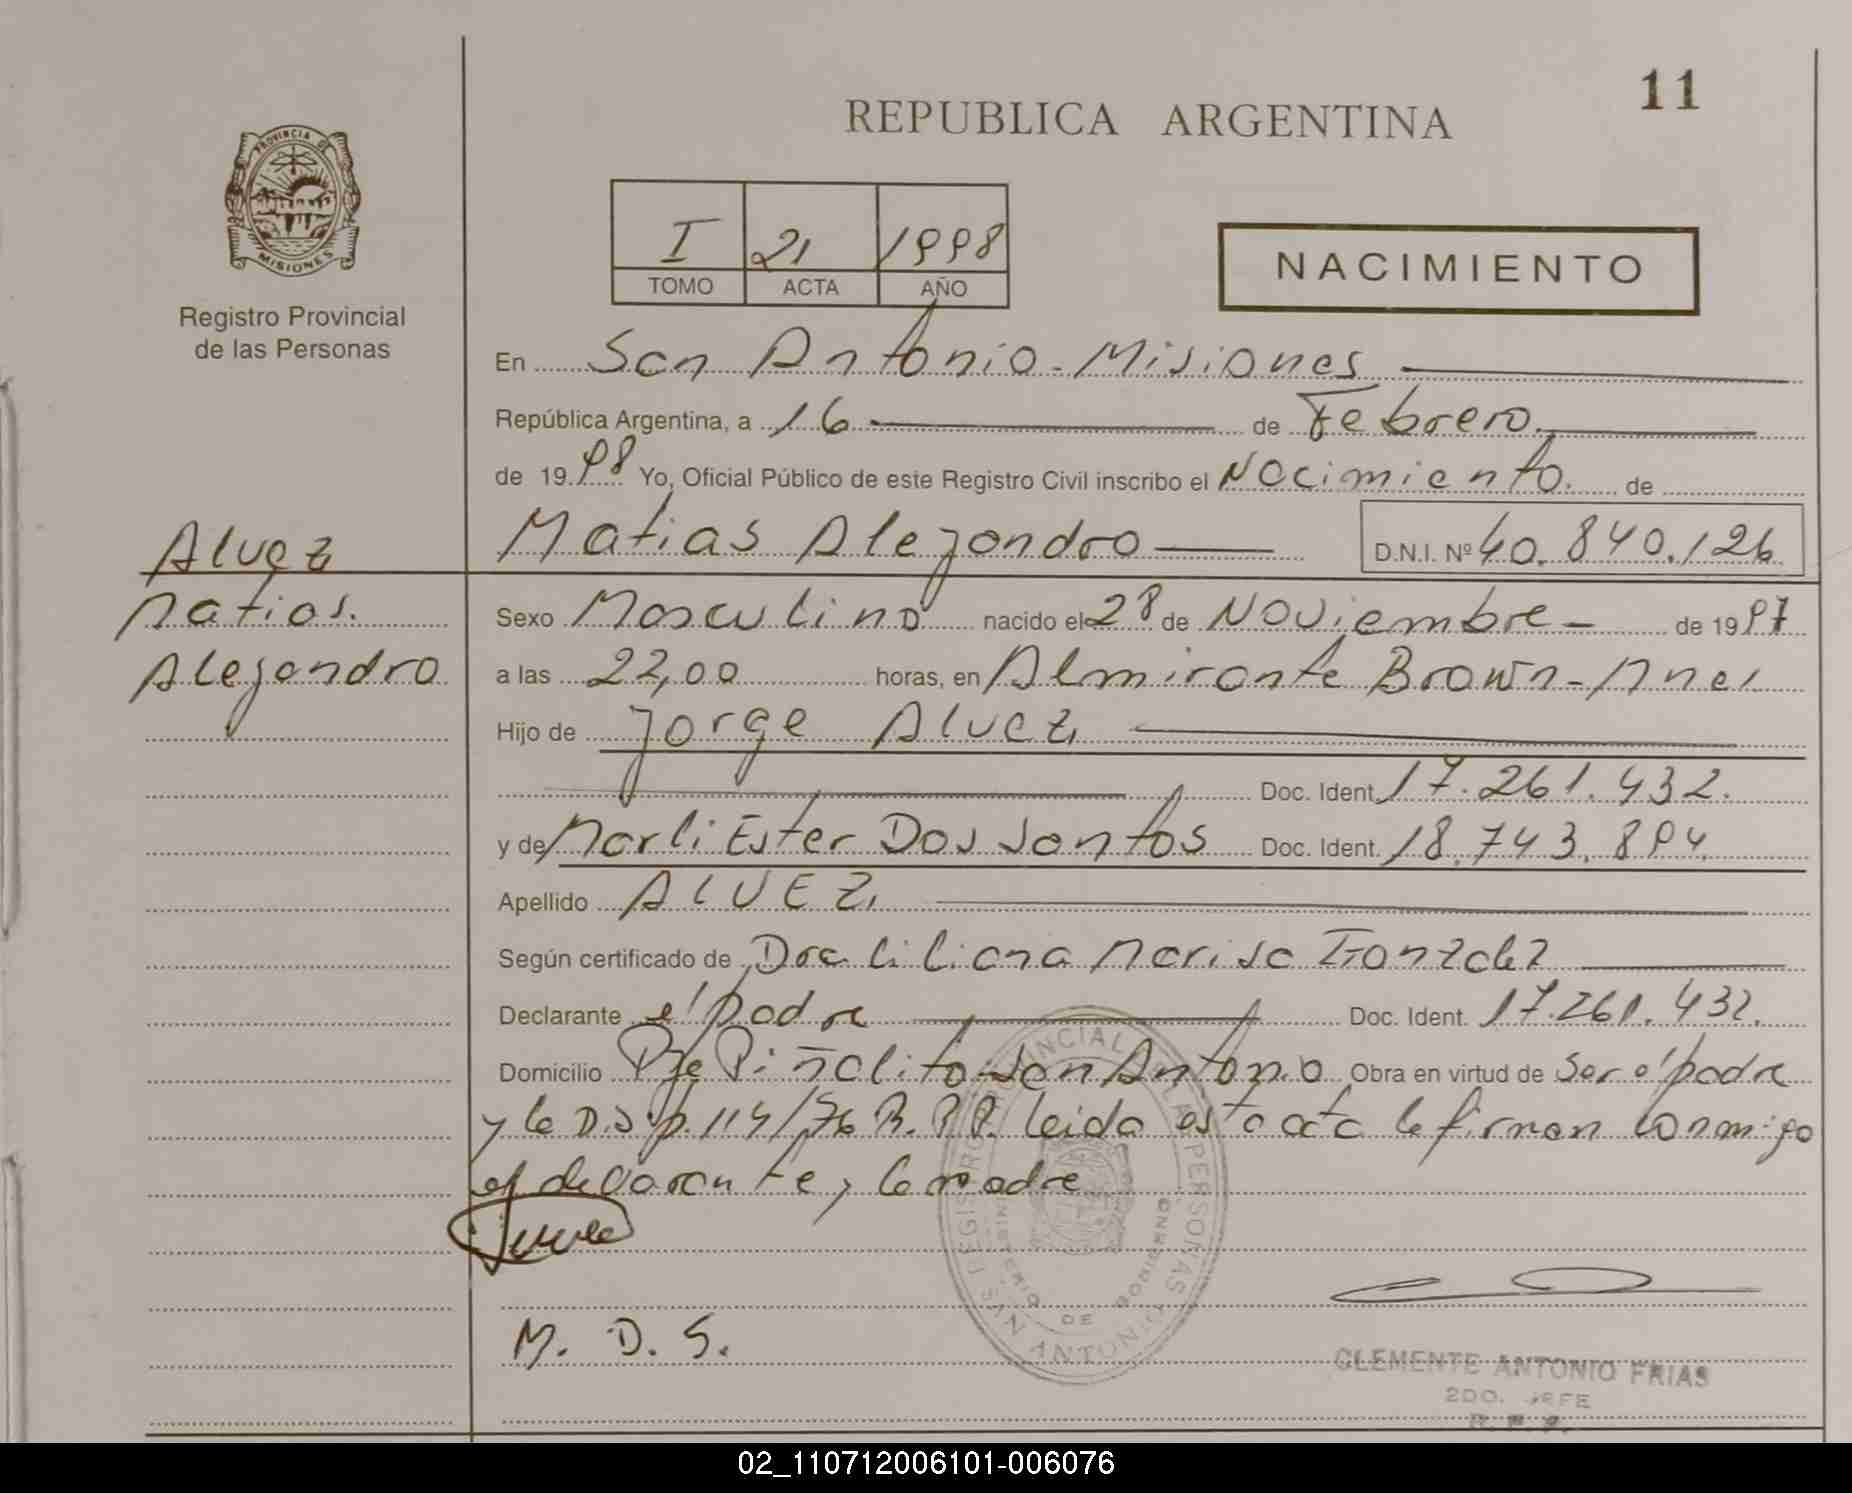 11
REPUBLICA ARGENTINA
PROVINCIA DE
MISIONES
Registro Provincial
de las Personas
I 21 1998
TOMO ACTA AÑO
NACIMIENTO
En San Antonio - Misiones
República Argentina, a 16 de Febrero.
de 1998 Yo, Oficial Público de este Registro Civil inscribo el Nacimiento. de
Matias Alejandro D.N.I. Nº 40.840.126
Alvez
Matias.
Alejandro
Sexo Masculino nacido el 28 de Noviembre - de 1997
a las 22,00 horas, en Almirante Brown -
Hijo de Jorge Alvez,
Doc. Ident. 17.261.432.
y de Marli Ester Dos Santos Doc. Ident. 18.743.894
Apellido ALVEZ,
Según certificado de Dra Liliana Marisa Gonzalez
Declarante el padre Doc. Ident. 17.261.432.
Domicilio Pje Piñalito San Antonio Obra en virtud de Ser el padre
y la D.S.p. 114/76 R.P.P. leida esta acta la firman conmigo
el declarante y la madre
M. D. S.
REGISTRO PROVINCIAL DE LAS PERSONAS
MINISTERIO DE GOBIERNO
SAN ANTONIO
CLEMENTE ANTONIO FRIAS
2DO. JEFE
R. P. P.
02_110712006101-006076